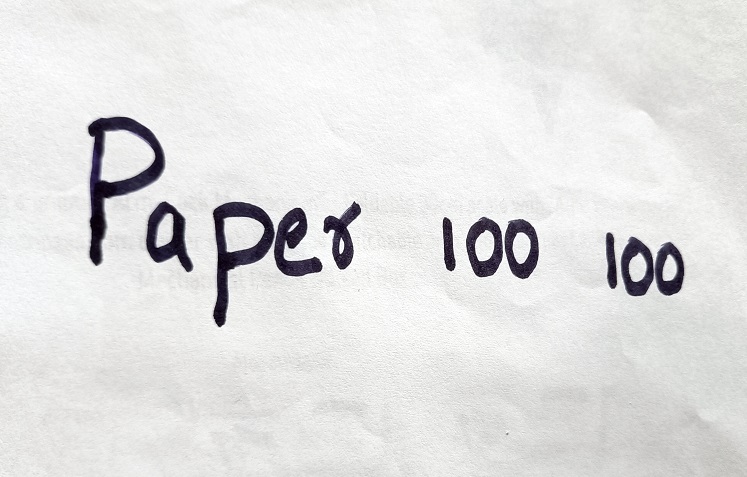 Paper 100 100